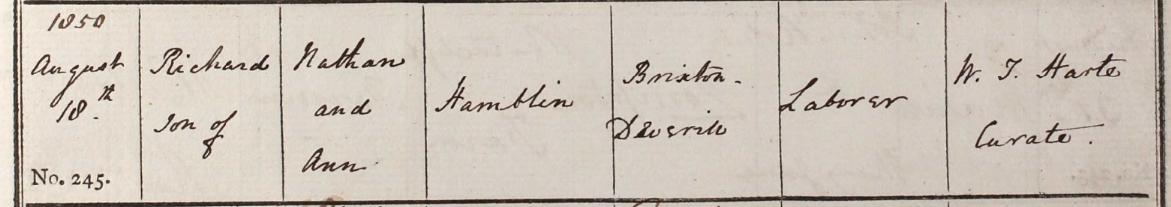 1850
August
18th.
No. 245.
Richard
Son of
Nathan
and
Ann
Hamblin
Brixton-
Deverill
Laborer
W. T. Harte
Curate.